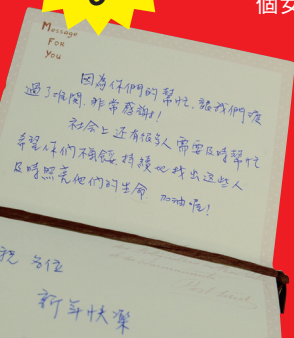 個女
Message
For
You
因為你們的幫忙，讓我們度
過了難關，非常感謝！
社會上还有很多人需要及時幫忙
希望你們不餘持續地找出這些人
及時照亮他們的生命 加油喔！
祝 各位
新年快樂